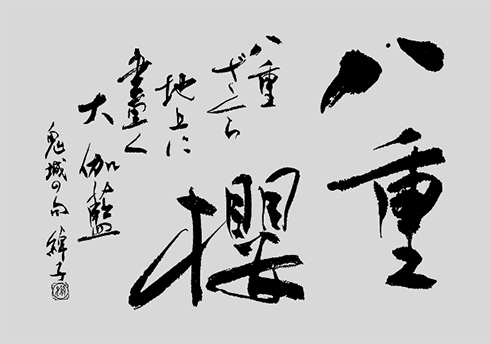 八重
櫻
八重
ざくら
地上に
畫く
大伽藍
鬼城の句